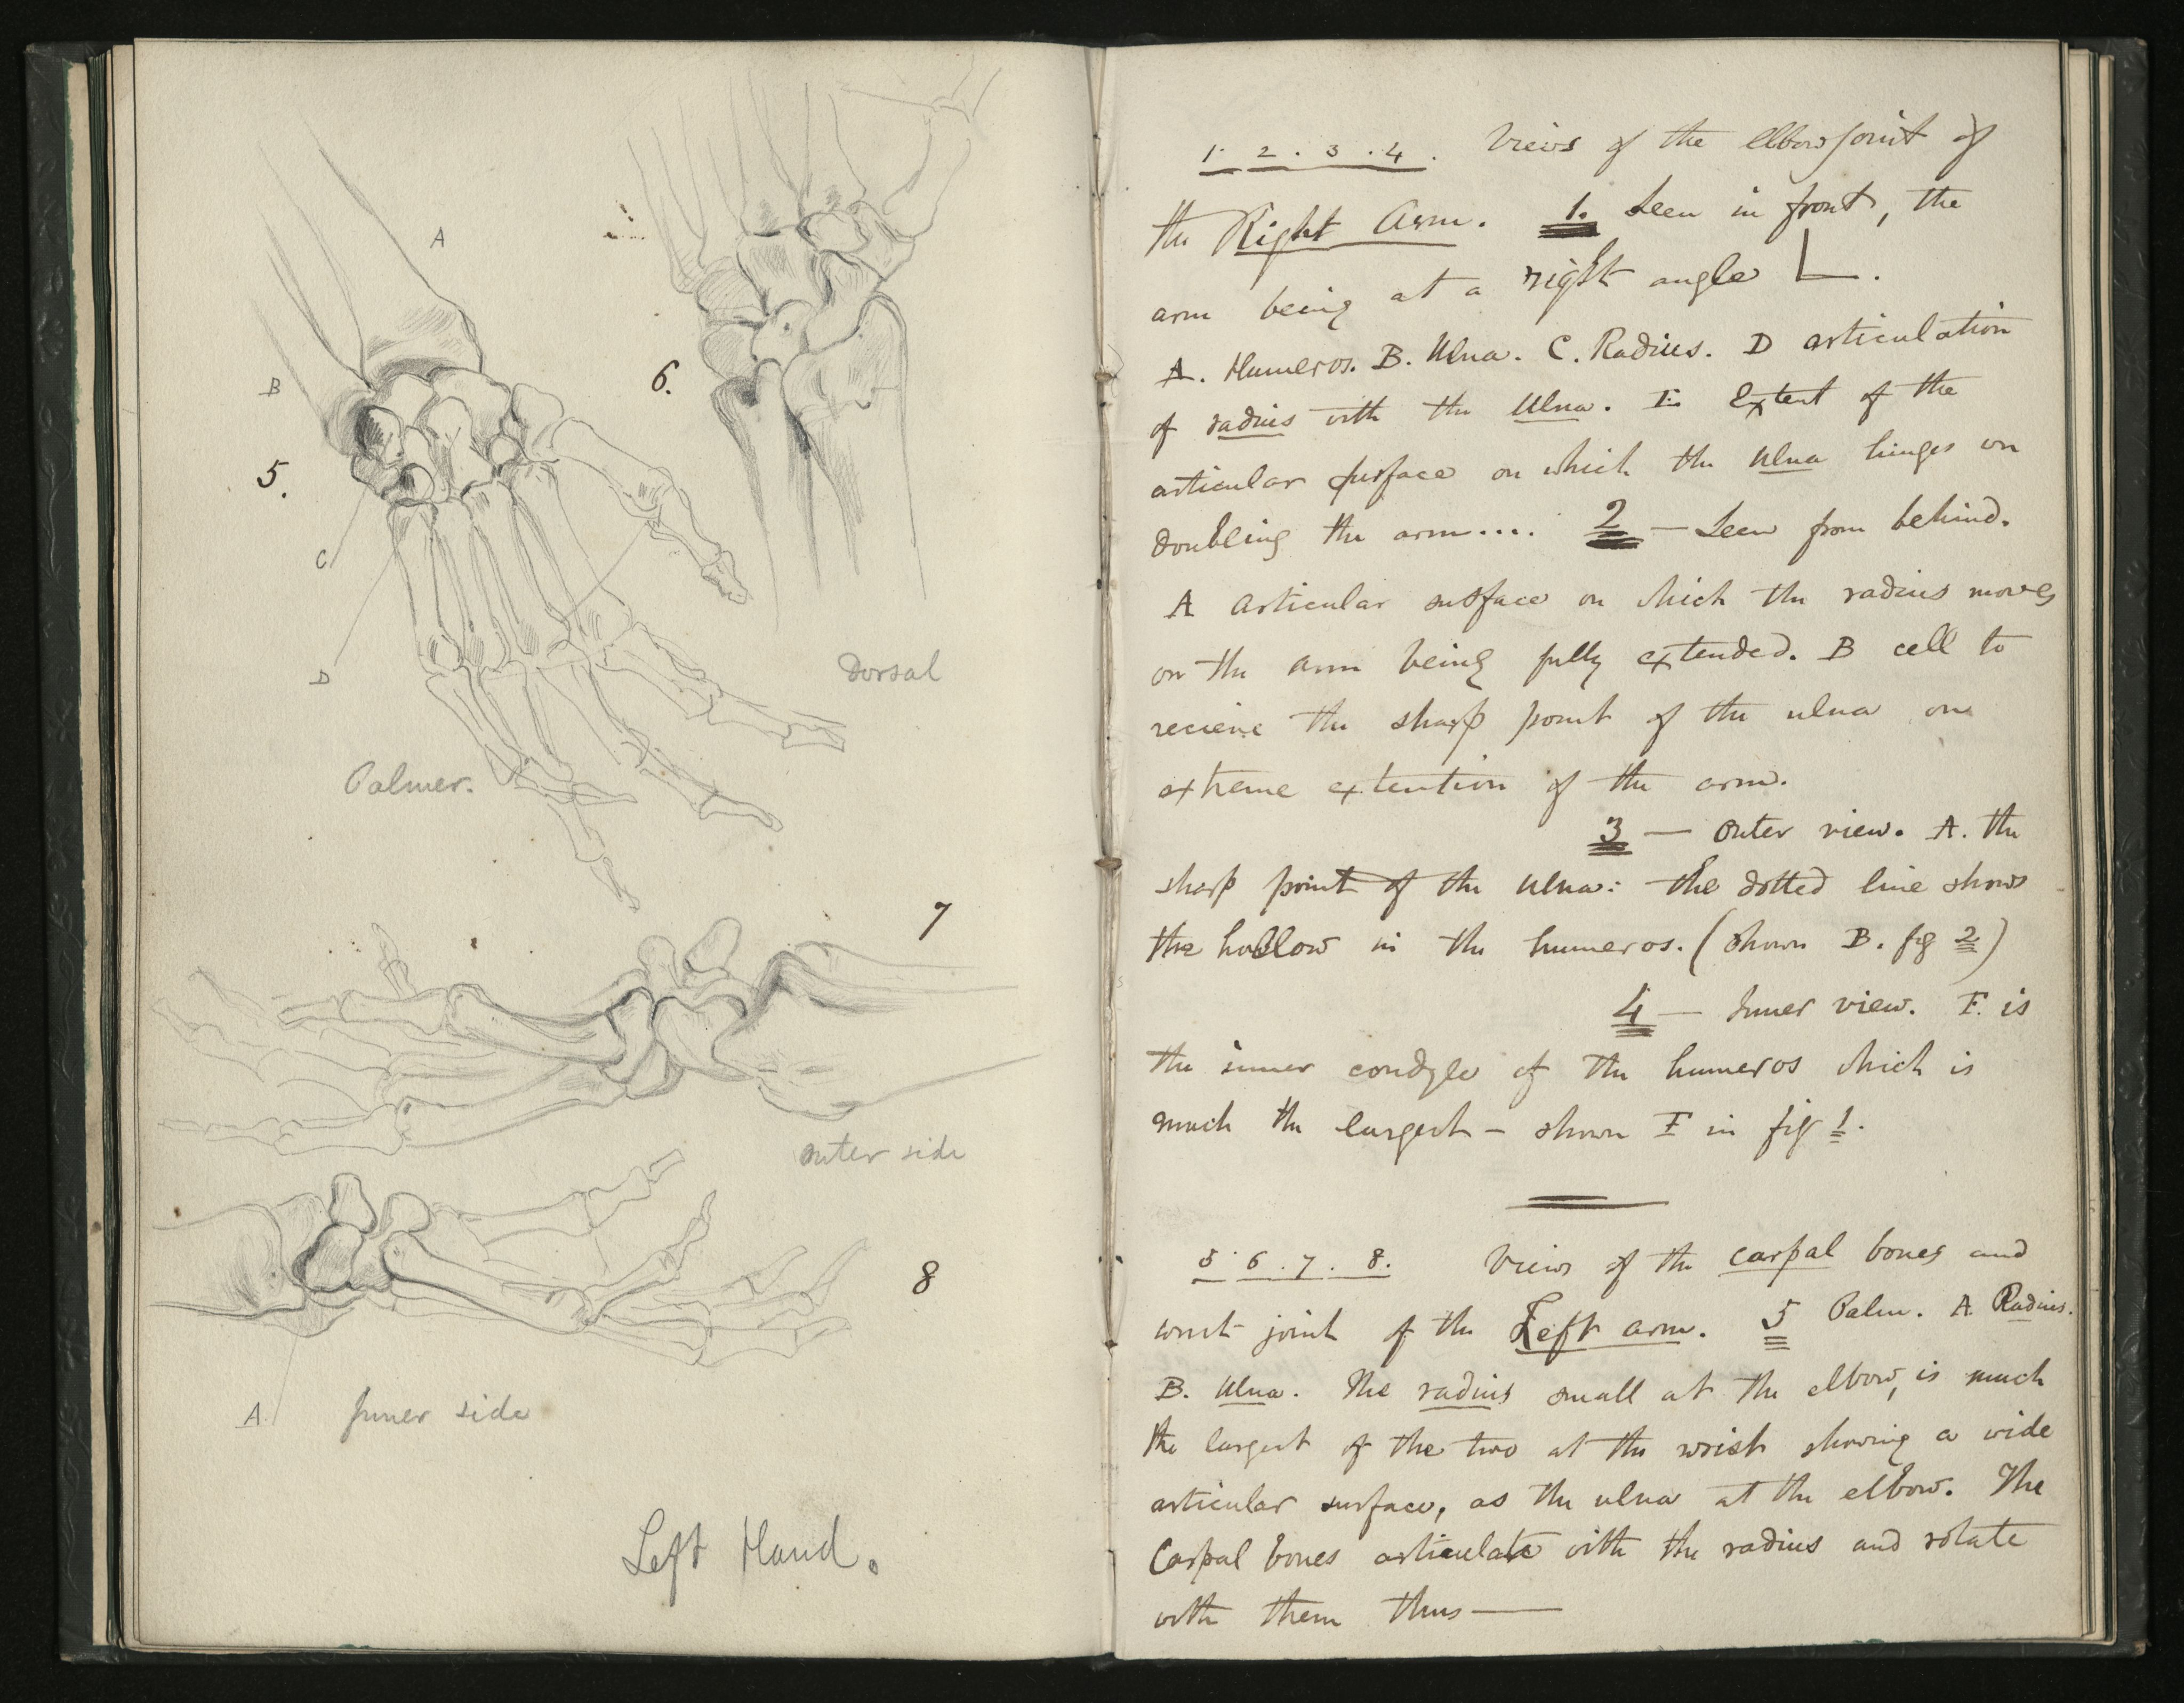 A
B
5.
6.
C
D
Dorsal
Palmer.
7
outer side
8
A
Inner side
Left Hand.
1. 2. 3. 4. Views of the elbow joint of
the Right Arm. 1. Seen in front, the
arm being at a right angle L.
A. Humeros. B. Ulna. C. Radius. D articulation
of radius with the Ulna. E Extent of the
articular surface on which the ulna hinges on
doubling the arm.... 2 — Seen from behind.
A articular surface on which the radius moves
on the arm being fully extended. B cell to
recieve the sharp point of the ulna on
extreme extention of the arm.
3 — outer view. A. the
sharp point of the ulna: the dotted line shows
the hollow in the humeros. (shown B. fig 2)
4 — Inner view. F. is
the inner condyle of the humeros which is
much the largest – shown F in fig 1.
5. 6. 7. 8. Views of the carpal bones and
wrist joint of the Left arm. 5 Palm. A Radius.
B. Ulna. The radius small at the elbow, is much
the largest of the two at the wrist showing a wide
articular surface, as the ulna at the elbow. The
Carpal bones articulate with the radius and rotate
with them thus —